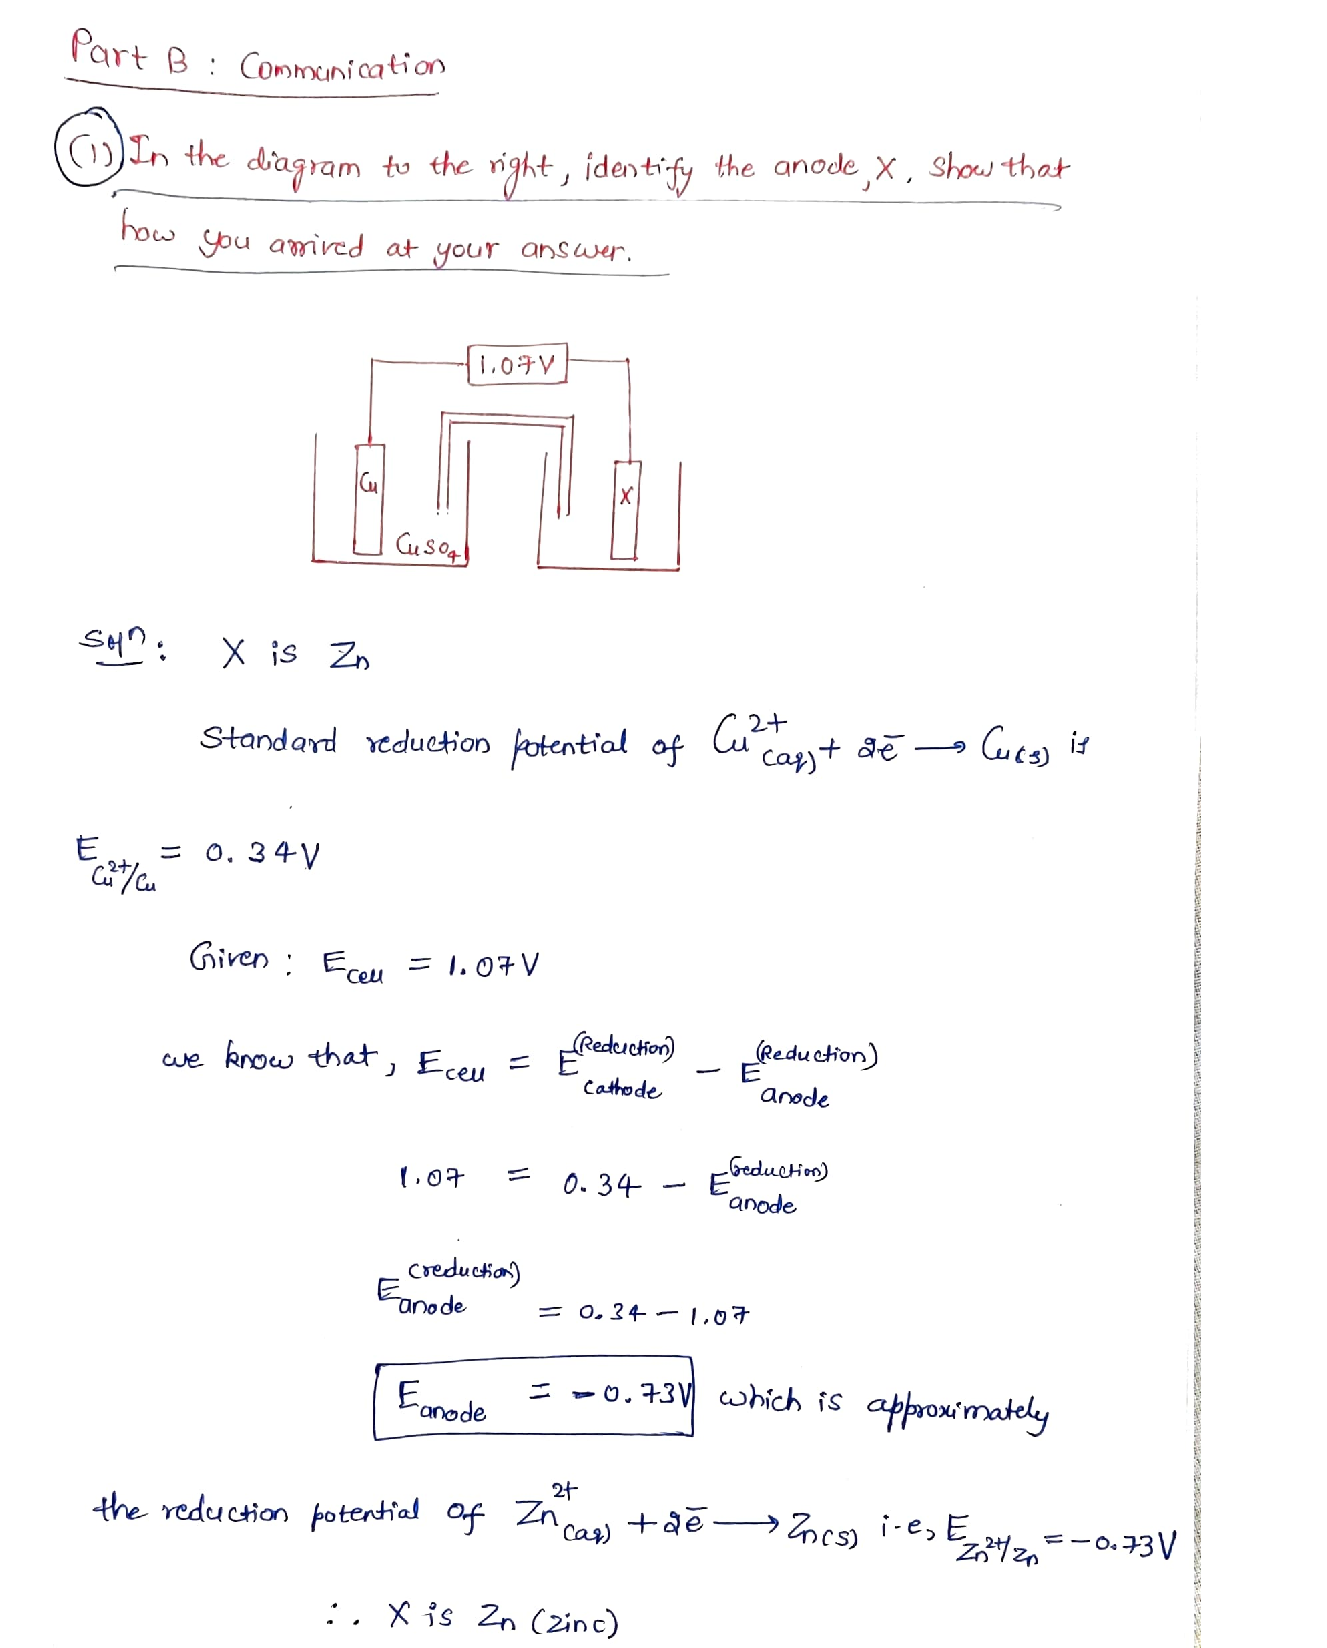 Part B : Communication
(1) In the diagram to the right, identify the anode, X, Show that
how you arrived at your answer.
1.07V
Cu
X
CuSO4
Soln: X is Zn
Standard reduction potential of Cu²⁺(aq) + 2e⁻ → Cu(s) is
E Cu²⁺/Cu = 0.34V
Given : Ecell = 1.07V
we know that, Ecell = E(Reduction) cathode − E(Reduction) anode
1.07 = 0.34 − E(reduction) anode
E(reduction) anode = 0.34 − 1.07
E anode = −0.73V which is approximately
the reduction potential of Zn²⁺(aq) + 2e⁻ → Zn(s) i.e, E Zn²⁺/Zn = −0.73V
∴ X is Zn (zinc)